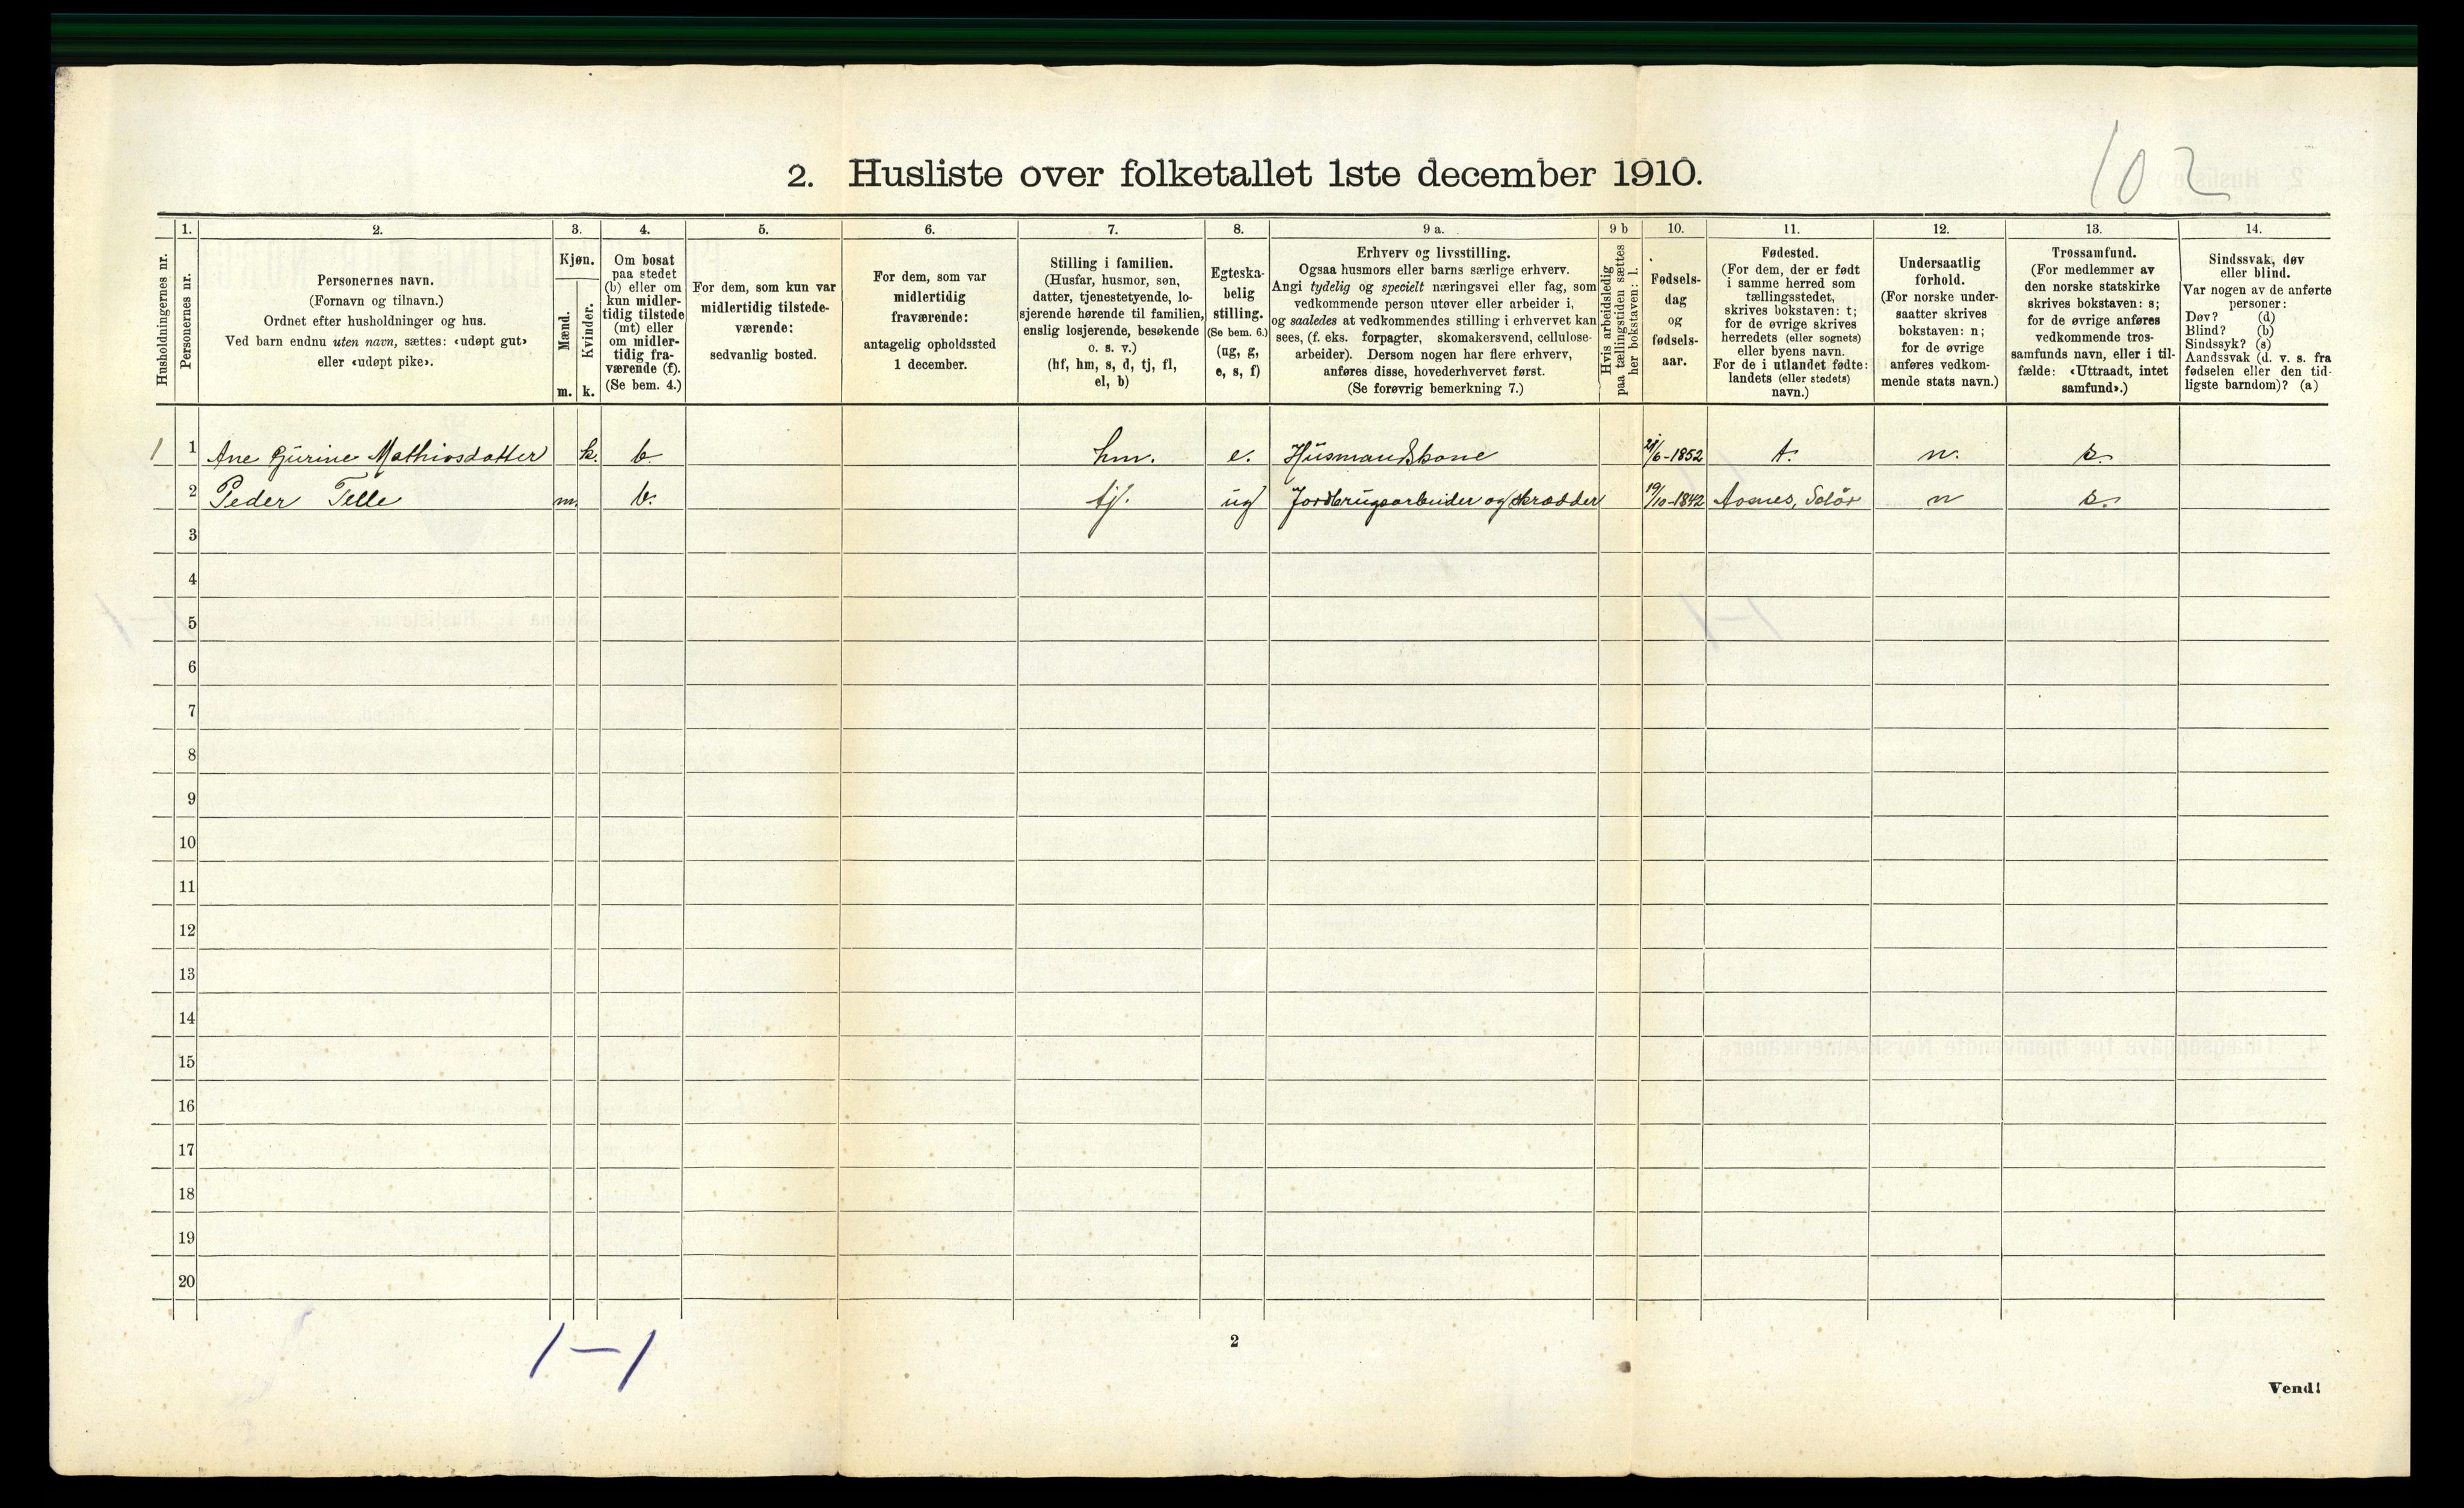 102
2. Husliste over folketallet 1ste december 1910.
Husholdningernes nr.
1.
Personernes nr.
2.
Personernes navn.
(Fornavn og tilnavn.)
Ordnet efter husholdninger og hus.
Ved barn endnu uten navn, sættes: «udøpt gut»
eller «udøpt pike».
3.
Kjøn.
Mænd.
m.
Kvinder.
k.
4.
Om bosat
paa stedet
(b) eller om
kun midler-
tidig tilstede
(mt) eller
om midler-
tidig fra-
værende (f).
(Se bem. 4.)
5.
For dem, som kun var
midlertidig tilstede-
værende:
sedvanlig bosted.
6.
For dem, som var
midlertidig
fraværende:
antagelig opholdssted
1 december.
7.
Stilling i familien.
(Husfar, husmor, søn,
datter, tjenestetyende, lo-
sjerende hørende til familien,
enslig losjerende, besøkende
o. s. v.)
(hf, hm, s, d, tj, fl,
el, b)
8.
Egteska-
belig
stilling.
(Se bem. 6.)
(ug, g,
e, s, f)
9 a.
Erhverv og livsstilling.
Ogsaa husmors eller barns særlige erhverv.
Angi tydelig og specielt næringsvei eller fag, som
vedkommende person utøver eller arbeider i,
og saaledes at vedkommendes stilling i erhvervet kan
sees, (f. eks. forpagter, skomakersvend, cellulose-
arbeider). Dersom nogen har flere erhverv,
anføres disse, hovederhvervet først.
(Se forøvrig bemerkning 7.)
9 b
Hvis arbeidsledig
paa tællingstiden sættes
her bokstaven: l.
10.
Fødsels-
dag
og
fødsels-
aar.
11.
Fødested.
(For dem, der er født
i samme herred som
tællingsstedet,
skrives bokstaven: t;
for de øvrige skrives
herredets (eller sognets)
eller byens navn.
For de i utlandet fødte:
landets (eller stedets)
navn.)
12.
Undersaatlig
forhold.
(For norske under-
saatter skrives
bokstaven: n;
for de øvrige
anføres vedkom-
mende stats navn.)
13.
Trossamfund.
(For medlemmer av
den norske statskirke
skrives bokstaven: s;
for de øvrige anføres
vedkommende tros-
samfunds navn, eller i til-
fælde: «Uttraadt, intet
samfund».)
14.
Sindssvak, døv
eller blind.
Var nogen av de anførte
personer:
Døv? (d)
Blind? (b)
Sindssyk? (s)
Aandssvak (d. v. s. fra
fødselen eller den tid-
ligste barndom)? (a)
1 1 Ane Gurine Mathiasdatter k. b. hm. e. Husmandskone /6-1852 t. n. s.
2 Peder Telle m. b. tj. ug Jordbrugsarbeider og skrædder 19/10-1842 Aasnes, Solør n s.
3
4
5
6
7
8
9
10
11
12
13
14
15
16
17
18
19
20
1-1
2
Vend!